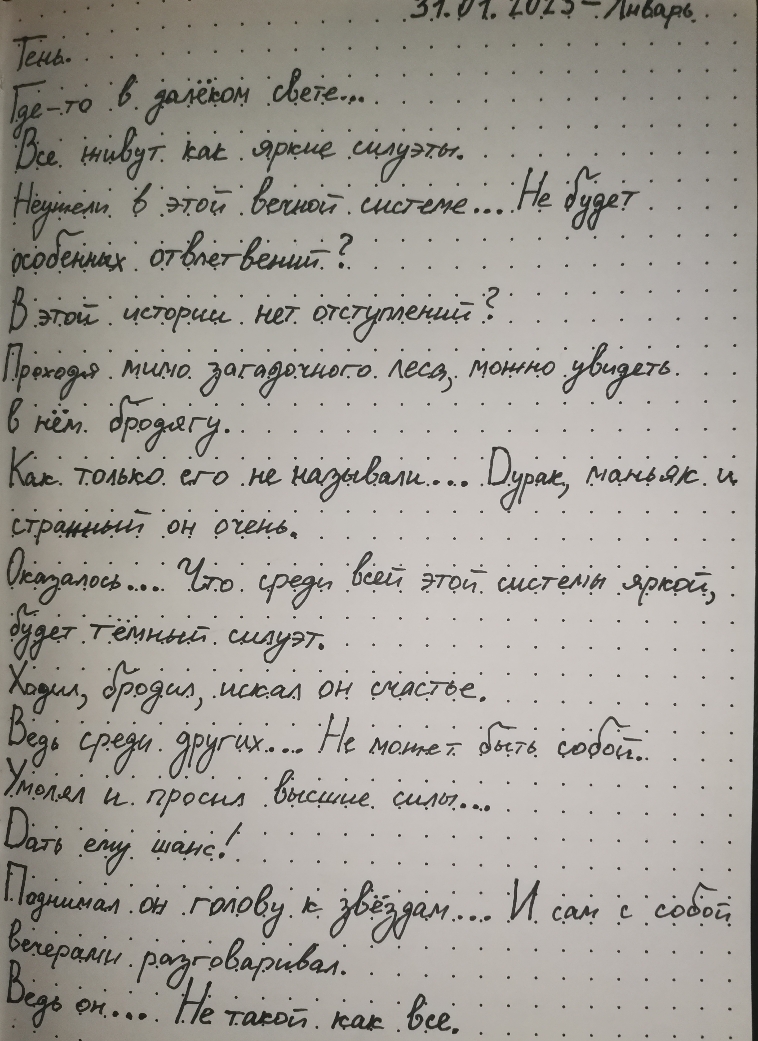 31.01.2025 - Январь
Тень.
Где-то в далёком свете...
Все живут как яркие силуэты.
Неужели в этой вечной системе... Не будет
особенных ответвений?
В этой истории нет отступлений?
Проходя мимо загадочного леса, можно увидеть
в нём бродягу.
Как только его не называли.... Дурак, маньяк и
странный он очень.
Оказалось.... Что среди всей этой системы яркой,
будет тёмный силуэт.
Ходил, бродил, искал он счастье.
Ведь среди других.... Не может быть собой.
Умолял и просил высшие силы...
Дать ему шанс!
Поднимал он голову к звёздам.... И сам с собой
вечерами разговаривал.
Ведь он.... Не такой как все.